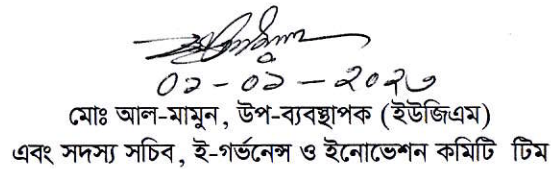 ০১-০১-২০২৩
মোঃ আল-মামুন, উপ-ব্যবস্থাপক (ইউজিএম)
এবং সদস্য সচিব, ই-গর্ভনেন্স ও ইনোভেশন কমিটি টিম